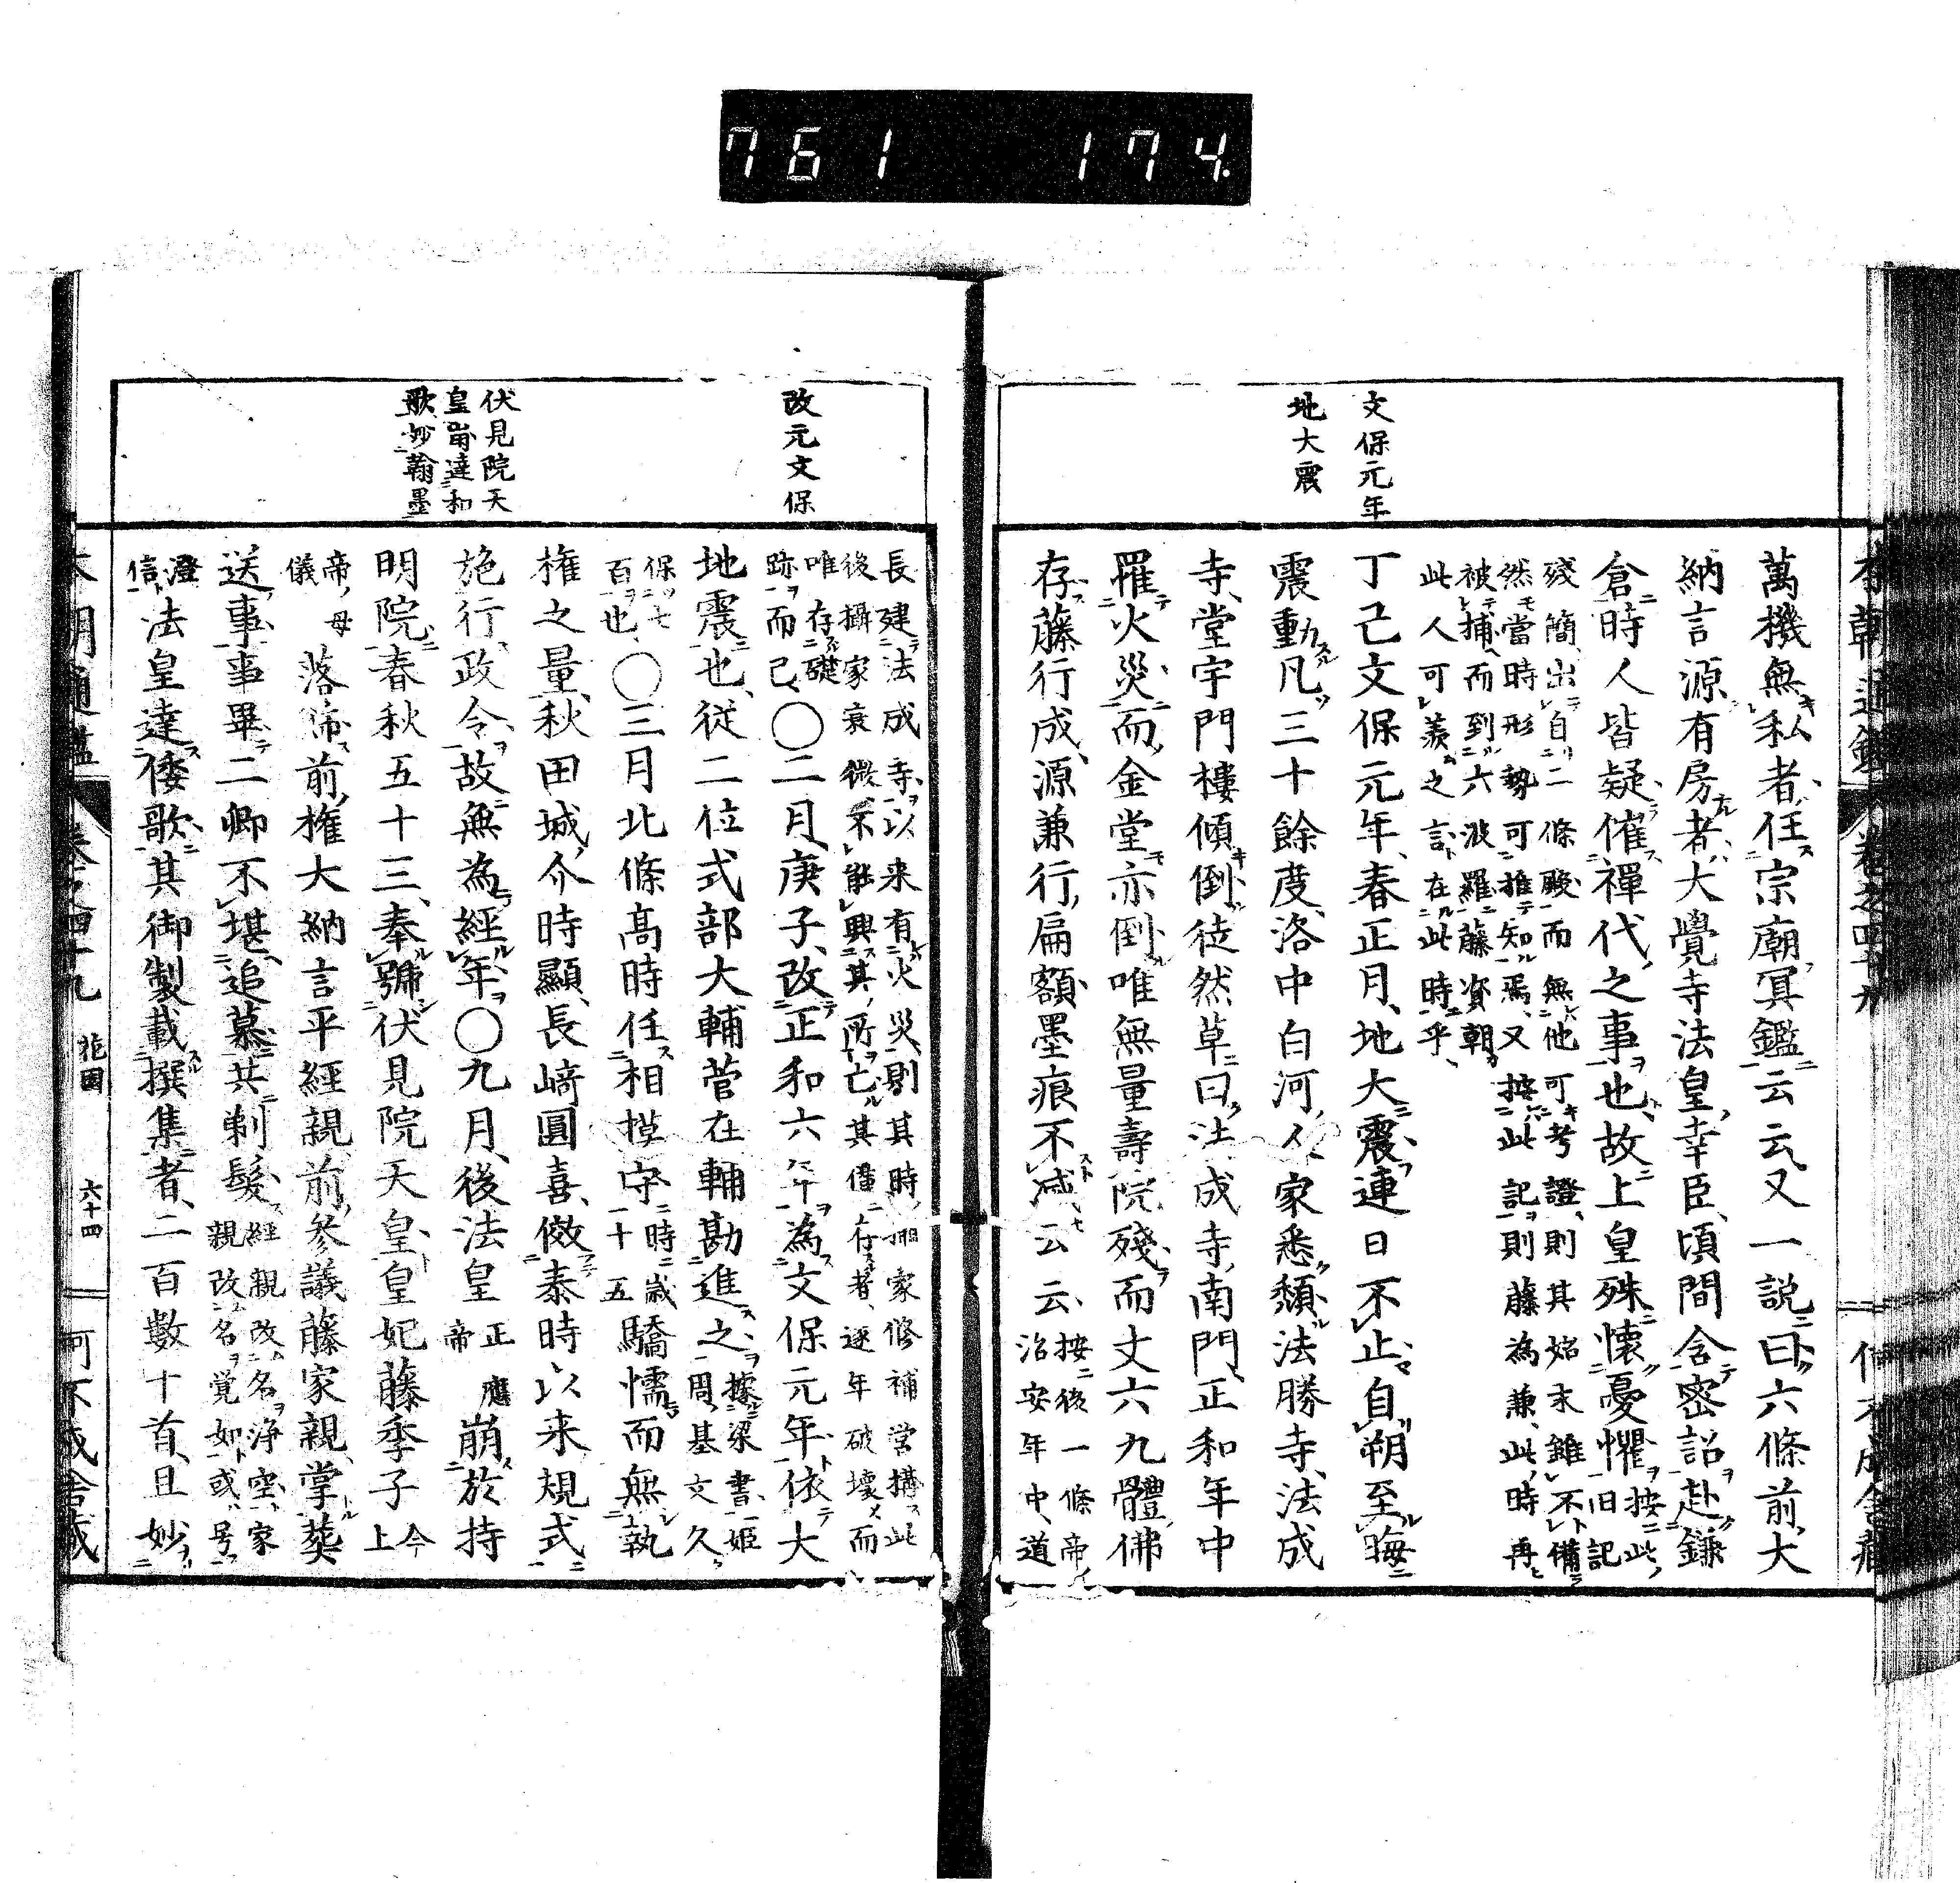 761 174
文保元年
地大震
萬機無私者任宗廟冥鑑云云又一説曰六條前大
納言源有房者大覺寺法皇幸臣頃間含密詔赴鎌
倉時人皆疑催禪代之事也故上皇殊懷憂懼按此旧記
殘簡出自二條殿而無他可考證則其始末雖不備
然當時形勢可推知焉又按此記則藤為兼此時再
被捕而到六波羅藤資朝
此人可羨之言在此時乎
丁己文保元年春正月地大震連日不止自朔至晦
震動凡三十餘度洛中白河人家悉頽法勝寺法成
寺堂宇門樓傾倒徒然草曰法成寺南門正和年中
罹火災而金堂亦倒唯無量壽院殘而丈六九體佛
存藤行成源兼行扁額墨痕不滅云云按後一條帝治安年中道
改元文保
伏見院天
皇崩達和
歌妙翰墨
長建法成寺以来有火災則其時攝家修補営搆此
後攝家衰微不能興其所亡其僅存者逐年破壞而
唯存礎
跡而已〇二月庚子改正和六年為文保元年依大
地震也從二位式部大輔菅在輔勘進之據梁書姫周基文久
保七
百也〇三月北條高時任相摸守時歳十五驕懦而無執
權之量秋田城介時顯長﨑圓喜倣泰時以来規式
施行政令故無為經年〇九月後法皇正應帝崩於持
明院春秋五十三奉號伏見院天皇皇妃藤季子今上
帝母
儀落飾前權大納言平經親前參議藤家親掌葬
送事事畢二卿不堪追慕共剃髮經親改名浄空家親改名覚如或号
澄
信法皇達倭歌其御製載撰集者二百數十首且妙
卷之四十九
六十四